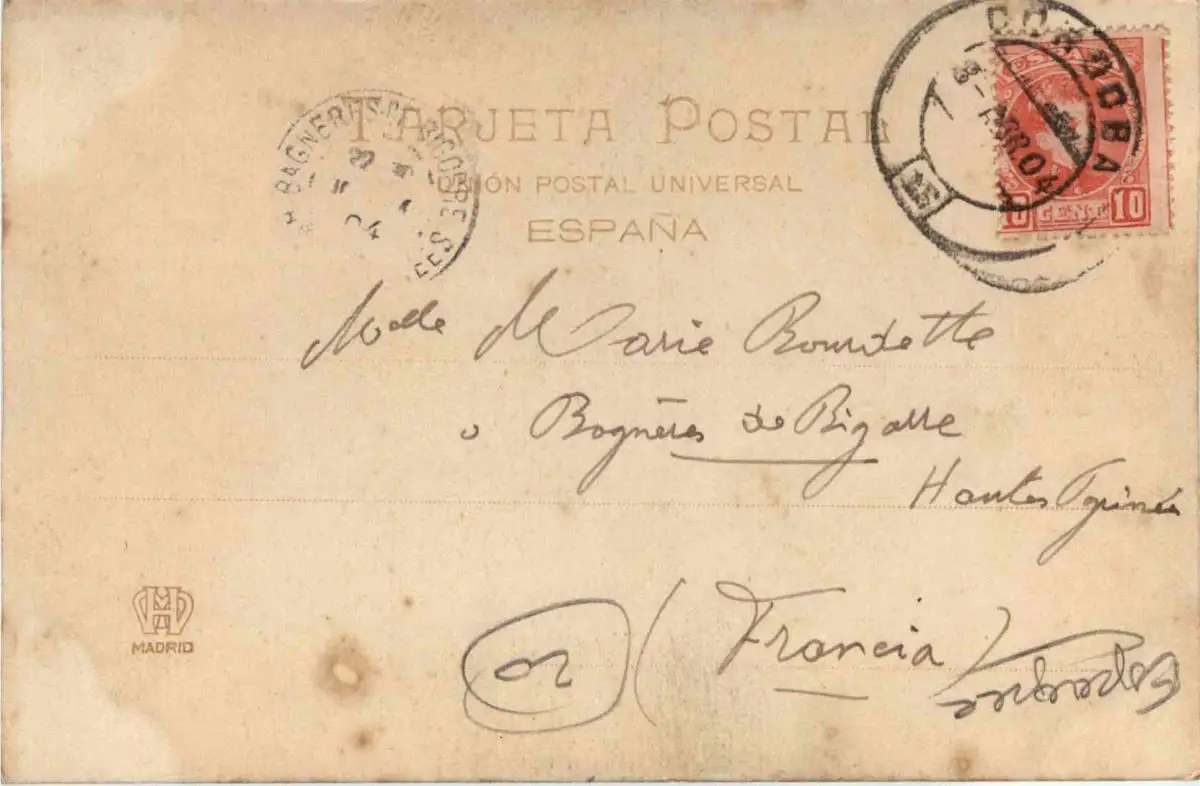 TARJETA POSTAL
UNIÓN POSTAL UNIVERSAL
ESPAÑA
BAGNERES-DE-BIGORRE
04
CORDOBA
8-ABR.04
10 CENT 10
Melle Marie Bourdette
Bagnères de Bigorre
Hautes Pyrénées
(Francia)
MADRID